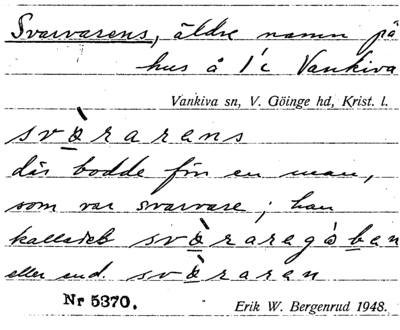 Svarvarens, äldre namn på
hus å 1/c Vankiva
Vankiva sn, V. Göinge hd, Krist. l.
svàrarens
där bodde förr en man,
som var svarvare; han
kallades svàraregåben
eller end. svàraren
Nr 5370. Erik W. Bergenrud 1948.